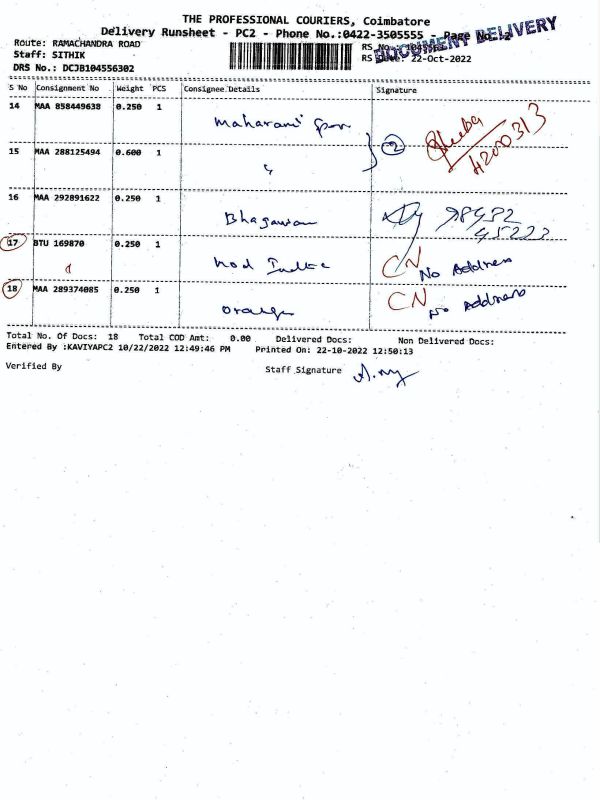 THE PROFESSIONAL COURIERS, Coimbatore
Delivery Runsheet - PC2 - Phone No.:0422-3505555 - Page No. 2
DOCUMENT DELIVERY
Route: RAMACHANDRA ROAD
Staff: SITHIK
DRS No.: DCJB104556302
RS No.:
RS Date: 22-Oct-2022
S No Consignment No Weight PCS Consignee Details Signature
14 MAA 858449638 0.250 1 Maharani
15 MAA 288125494 0.600 1 2 4200313
16 MAA 292891622 0.250 1 Bhagawan 98432
45222
17 BTU 169870 0.250 1 CN No Address
18 MAA 289374085 0.250 1 Orange CN No Address
Total No. Of Docs: 18 Total COD Amt: 0.00 Delivered Docs: Non Delivered Docs:
Entered By :KAVIYAPC2 10/22/2022 12:49:46 PM Printed On: 22-10-2022 12:50:13
Verified By Staff Signature